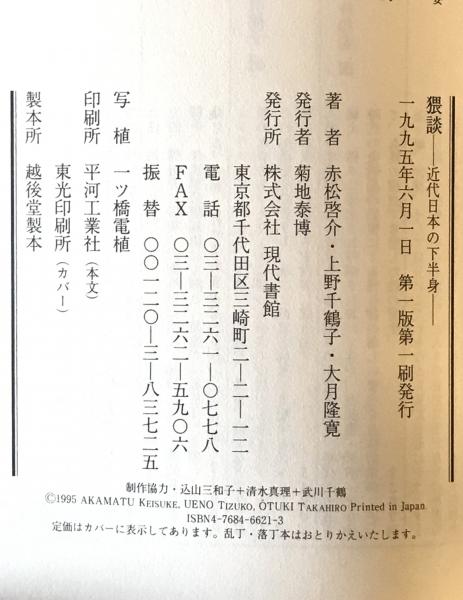 猥談――近代日本の下半身――
一九九五年六月一日　第一版第一刷発行
著者　赤松啓介・上野千鶴子・大月隆寛
発行者　菊地泰博
発行所　株式会社 現代書館
東京都千代田区三崎町二―二―一二
電話　〇三―三二六一―〇七七八
FAX　〇三―三二六二―五九〇六
振替　〇〇一二〇―三―八三七二五
写植　一ツ橋電植
印刷所　平河工業社（本文）
東光印刷所（カバー）
製本所　越後堂製本
制作協力・込山三和子＋清水真理＋武川千鶴
©1995 AKAMATU KEISUKE, UENO TIZUKO, ŌTUKI TAKAHIRO Printed in Japan.
ISBN4-7684-6621-3
定価はカバーに表示してあります。乱丁・落丁本はおとりかえいたします。